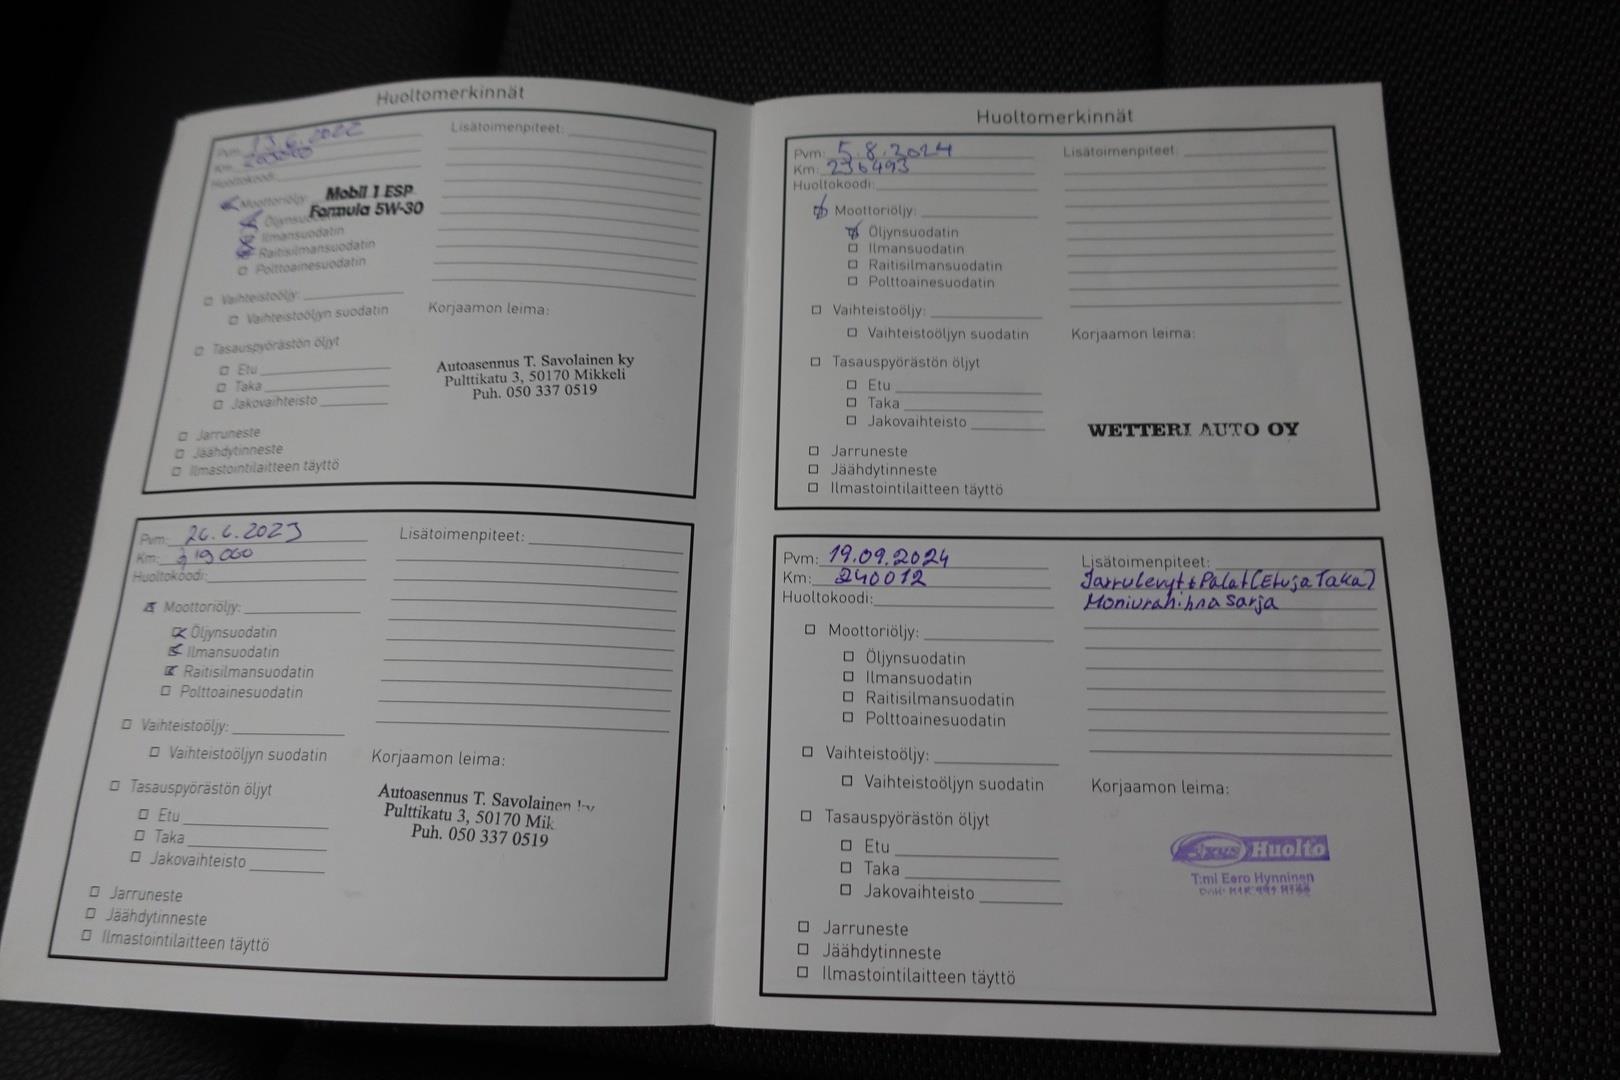 Huoltomerkinnät
Pvm: 13.6.2022
Km:
Huoltokoodi:
Moottoriöljy: Mobil 1 ESP
Formula 5W-30
Öljynsuodatin
Ilmansuodatin
Raitisilmansuodatin
Polttoainesuodatin
Vaihteistoöljy:
Vaihteistoöljyn suodatin
Tasauspyörästön öljyt
Etu
Taka
Jakovaihteisto
Jarruneste
Jäähdytinneste
Ilmastointilaitteen täyttö
Lisätoimenpiteet:
Korjaamon leima:
Autoasennus T. Savolainen ky
Pulttikatu 3, 50170 Mikkeli
Puh. 050 337 0519
Pvm: 26.6.2023
Km: 219000
Huoltokoodi:
Moottoriöljy:
Öljynsuodatin
Ilmansuodatin
Raitisilmansuodatin
Polttoainesuodatin
Vaihteistoöljy:
Vaihteistoöljyn suodatin
Tasauspyörästön öljyt
Etu
Taka
Jakovaihteisto
Jarruneste
Jäähdytinneste
Ilmastointilaitteen täyttö
Lisätoimenpiteet:
Korjaamon leima:
Autoasennus T. Savolainen ky
Pulttikatu 3, 50170 Mik
Puh. 050 337 0519
Huoltomerkinnät
Pvm: 5.8.2024
Km: 236493
Huoltokoodi:
Moottoriöljy:
Öljynsuodatin
Ilmansuodatin
Raitisilmansuodatin
Polttoainesuodatin
Vaihteistoöljy:
Vaihteistoöljyn suodatin
Tasauspyörästön öljyt
Etu
Taka
Jakovaihteisto
Jarruneste
Jäähdytinneste
Ilmastointilaitteen täyttö
Lisätoimenpiteet:
Korjaamon leima:
WETTERI AUTO OY
Pvm: 19.09.2024
Km: 240012
Huoltokoodi:
Moottoriöljy:
Öljynsuodatin
Ilmansuodatin
Raitisilmansuodatin
Polttoainesuodatin
Vaihteistoöljy:
Vaihteistoöljyn suodatin
Tasauspyörästön öljyt
Etu
Taka
Jakovaihteisto
Jarruneste
Jäähdytinneste
Ilmastointilaitteen täyttö
Lisätoimenpiteet:
Jarrulevyt + Palat (Etu ja Taka)
Moniurahihna sarja
Korjaamon leima:
Axus Huolto
T:mi Eero Hynninen